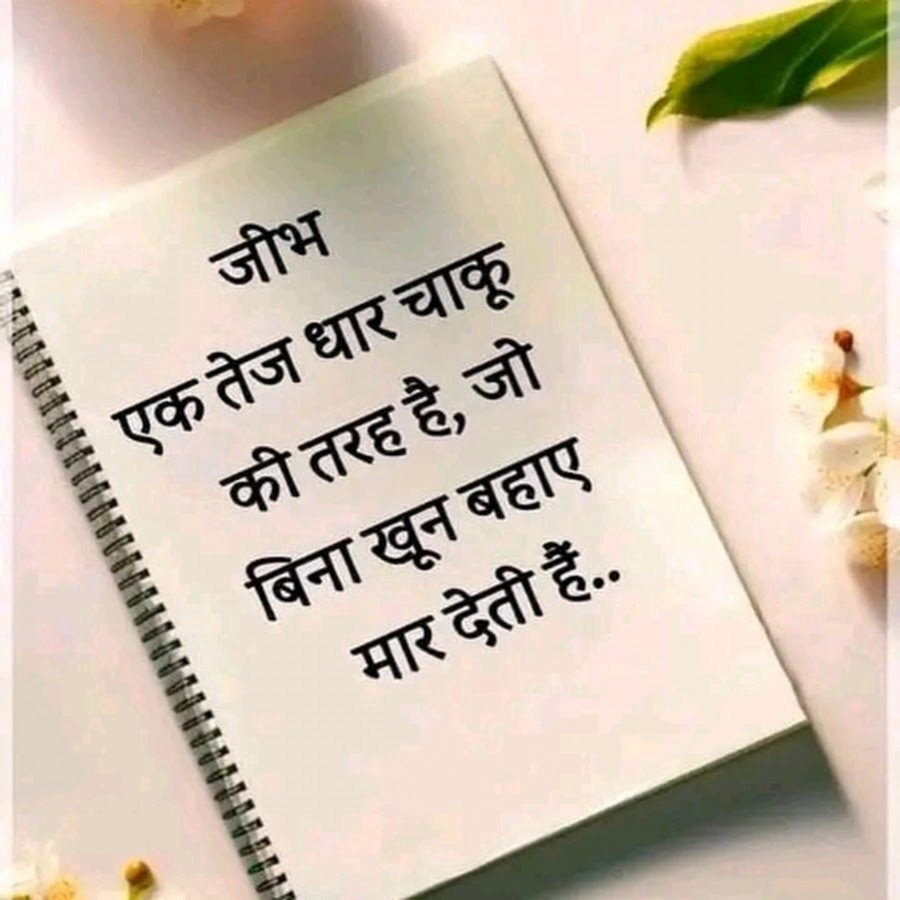 जीभ
एक तेज धार चाकू
की तरह है, जो
बिना खून बहाए
मार देती हैं..